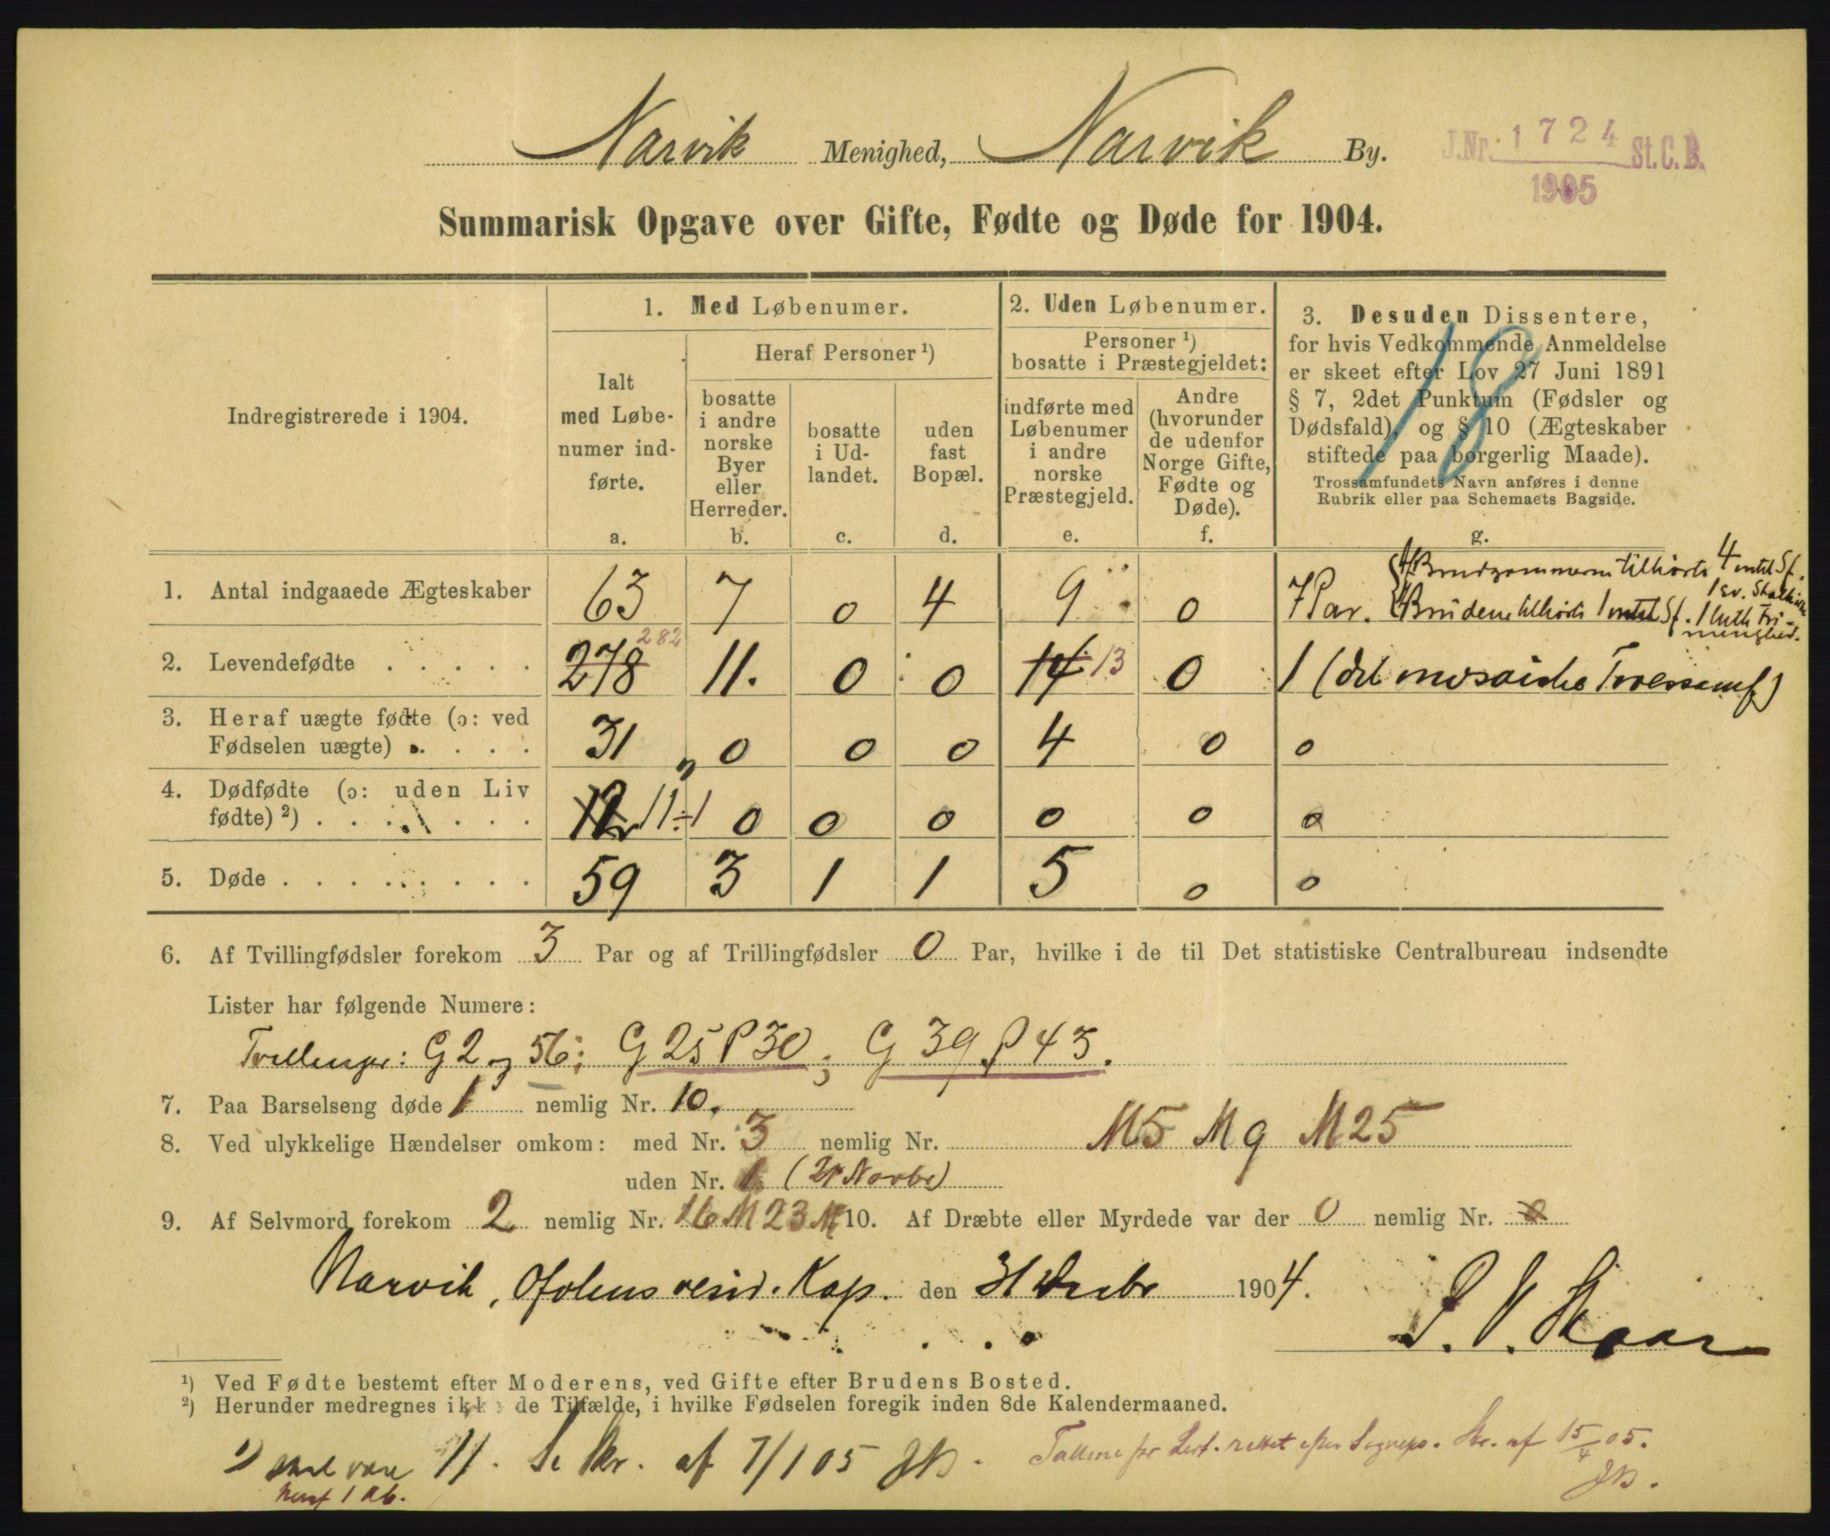 Narvik Menighed, Narvik By.
J.Nr. 1724 St.C.B.
1905
Summarisk Opgave over Gifte, Fødte og Døde for 1904.
18
Indregistrerede i 1904.
1. Med Løbenumer.
Ialt med Løbe-
numer ind-
førte.
a.
Heraf Personer ¹)
bosatte
i andre
norske
Byer
eller
Herreder.
b.
bosatte
i Ud-
landet.
c.
uden
fast
Bopæl.
d.
2. Uden Løbenumer.
Personer ¹)
bosatte i Præstegjeldet:
indførte med
Løbenumer
i andre
norske
Præstegjeld.
e.
Andre
(hvorunder
de udenfor
Norge Gifte,
Fødte og
Døde).
f.
3. Desuden Dissentere,
for hvis Vedkommende Anmeldelse
er skeet efter Lov 27 Juni 1891
§ 7, 2det Punktum (Fødsler og
Dødsfald), og § 10 (Ægteskaber
stiftede paa borgerlig Maade).
Trossamfundets Navn anføres i denne
Rubrik eller paa Schemaets Bagside.
g.
1. Antal indgaaede Ægteskaber 63 7 0 4 9 0 7 Par. {4 Brudgommerne tilhørte 4 metd Sf.
1 ev.
{4 Brudene tilhørte 1 metd Sf. 1 luth Fri-
menghed.
2. Levendefødte . . . . . 278 282 11. 0 0 14 13 0 1 (det mosaiske Troessamf)
3. Heraf uægte fødte (ɔ: ved
Fødselen uægte) . . . . 31 0 0 0 4 0 0
4. Dødfødte (ɔ: uden Liv
fødte) ²) . . . . . . . 12 11 ÷ 1 0 0 0 0 0 0
5. Døde . . . . . . . . . 59 3 1 1 5 0 0
6. Af Tvillingfødsler forekom 3 Par og af Trillingfødsler 0 Par, hvilke i de til Det statistiske Centralbureau indsendte
Lister har følgende Numere:
Tvillinger: G 2 og 56; G 25 P 30; G 39 P 43.
7. Paa Barselseng døde 1 nemlig Nr. 10.
8. Ved ulykkelige Hændelser omkom: med Nr. 3 nemlig Nr. M5 M9 M25
uden Nr. 1
9. Af Selvmord forekom 2 nemlig Nr. 16 M 23 M 10. Af Dræbte eller Myrdede var der 0 nemlig Nr. 0
Narvik, Ofotens resid. Kap. den 31 Decbr 1904.
¹) Ved Fødte bestemt efter Moderens, ved Gifte efter Brudens Bosted.
²) Herunder medregnes ikke de Tilfælde, i hvilke Fødselen foregik inden 8de Kalendermaaned.
²) skal være 11. Se Skr. af 7/1 05 JB.
heraf 1 Ab.
Tallene for Levf. rettet efter Sognepr. Skr. af 15/4 05.
JB.